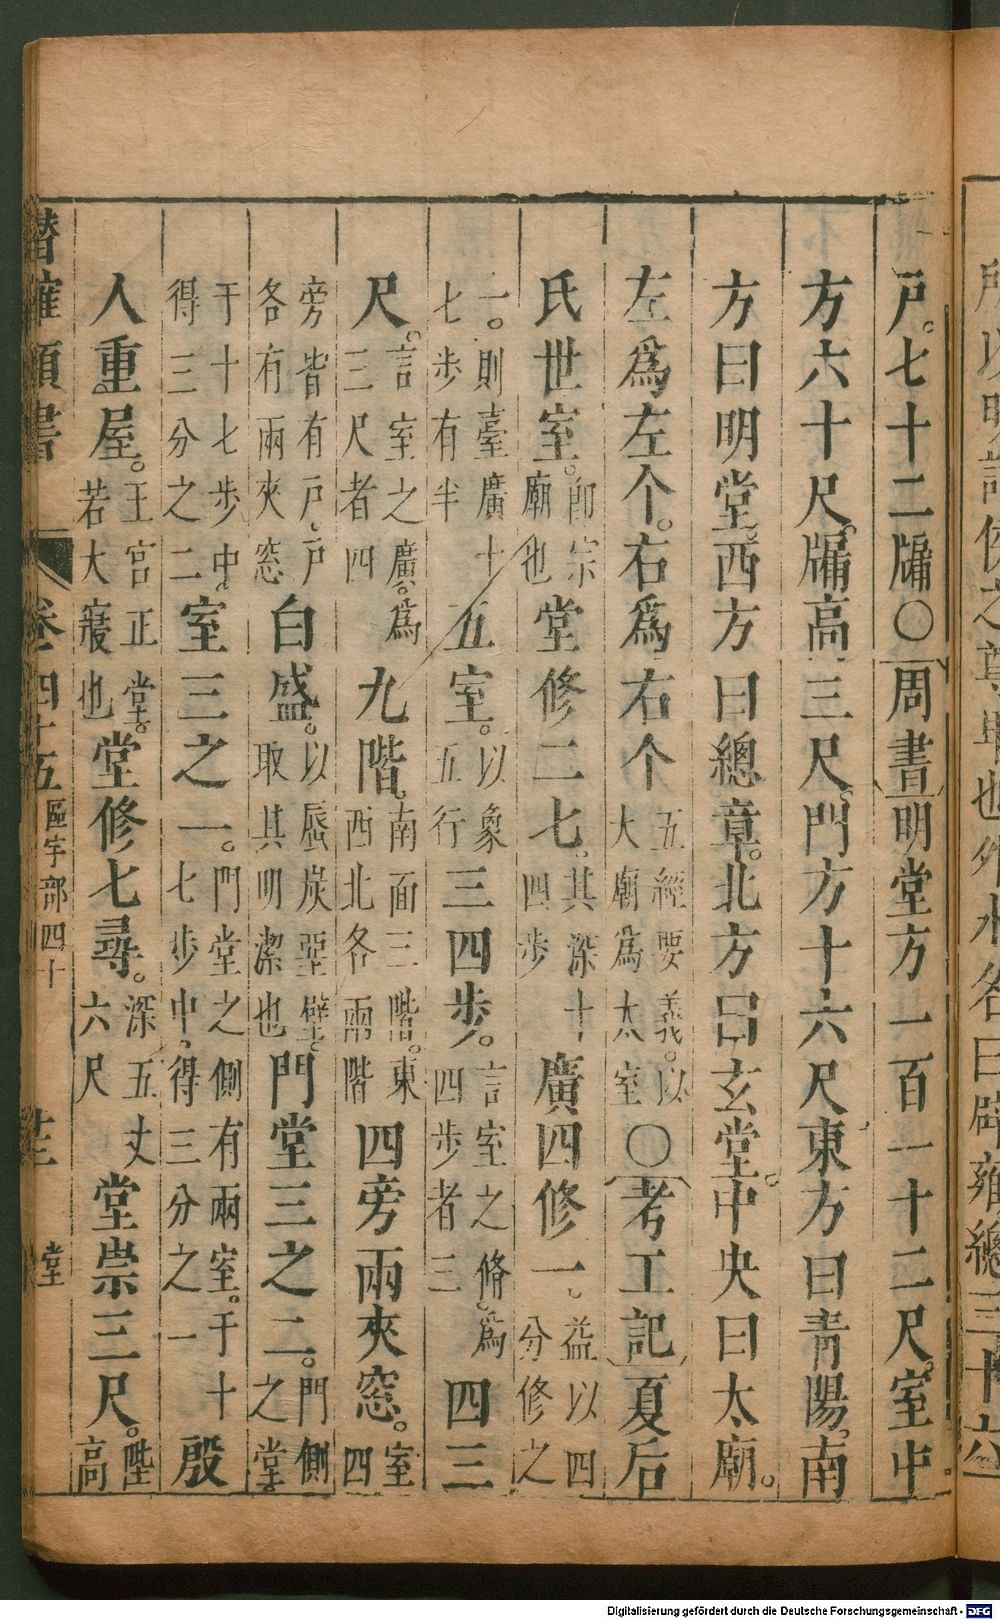 所以明諸侯之尊卑也外水名曰辟雍總三十六
戸。七十二牖〇周書明堂方一百一十二尺。室中
方六十尺。牖高三尺。門方十六尺東方曰青陽。南
方曰明堂。西方曰總章。北方曰玄堂。中央曰太廟。
左爲左个。右爲右个五經要義。以大廟爲太室〇考工記夏后
氏世室。卽宗廟也堂修二七。其深十四步廣四修一。益以四分修之
一。則臺廣十七步有半五室。以象五行三四步。言室之脩。爲四步者三四三
尺。言室之廣。爲三尺者四九階。南面三階。東西北各兩階四旁兩夾窓。室四
旁皆有戸。戸各有兩夾窓白盛。以蜃炭堊壁。取其明潔也門堂三之二。門側之堂。
于十七步中。得三分之二室三之一。門堂之側有兩室。于十七步中。得三分之一殷
人重屋。王宮正堂。若大寢也堂修七尋。深五丈六尺堂崇三尺。陛高
潛確類書 卷四十五 區宇部四十 堂
Digitalisierung gefördert durch die Deutsche Forschungsgemeinschaft - DFG